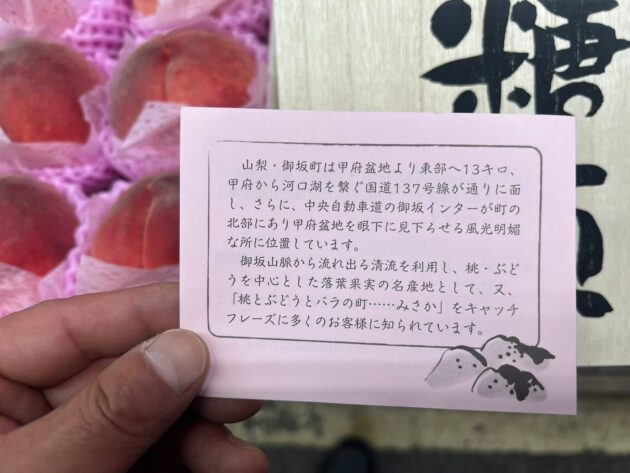 糖
山梨・御坂町は甲府盆地より東部へ13キロ、
甲府から河口湖を繋ぐ国道137号線が通りに面
し、さらに、中央自動車道の御坂インターが町の
北部にあり甲府盆地を眼下に見下らせる風光明媚
な所に位置しています。
御坂山脈から流れ出る清流を利用し、桃・ぶど
うを中心とした落葉果実の名産地として、又、
「桃とぶどうとバラの町……みさか」をキャッチ
フレーズに多くのお客様に知られています。